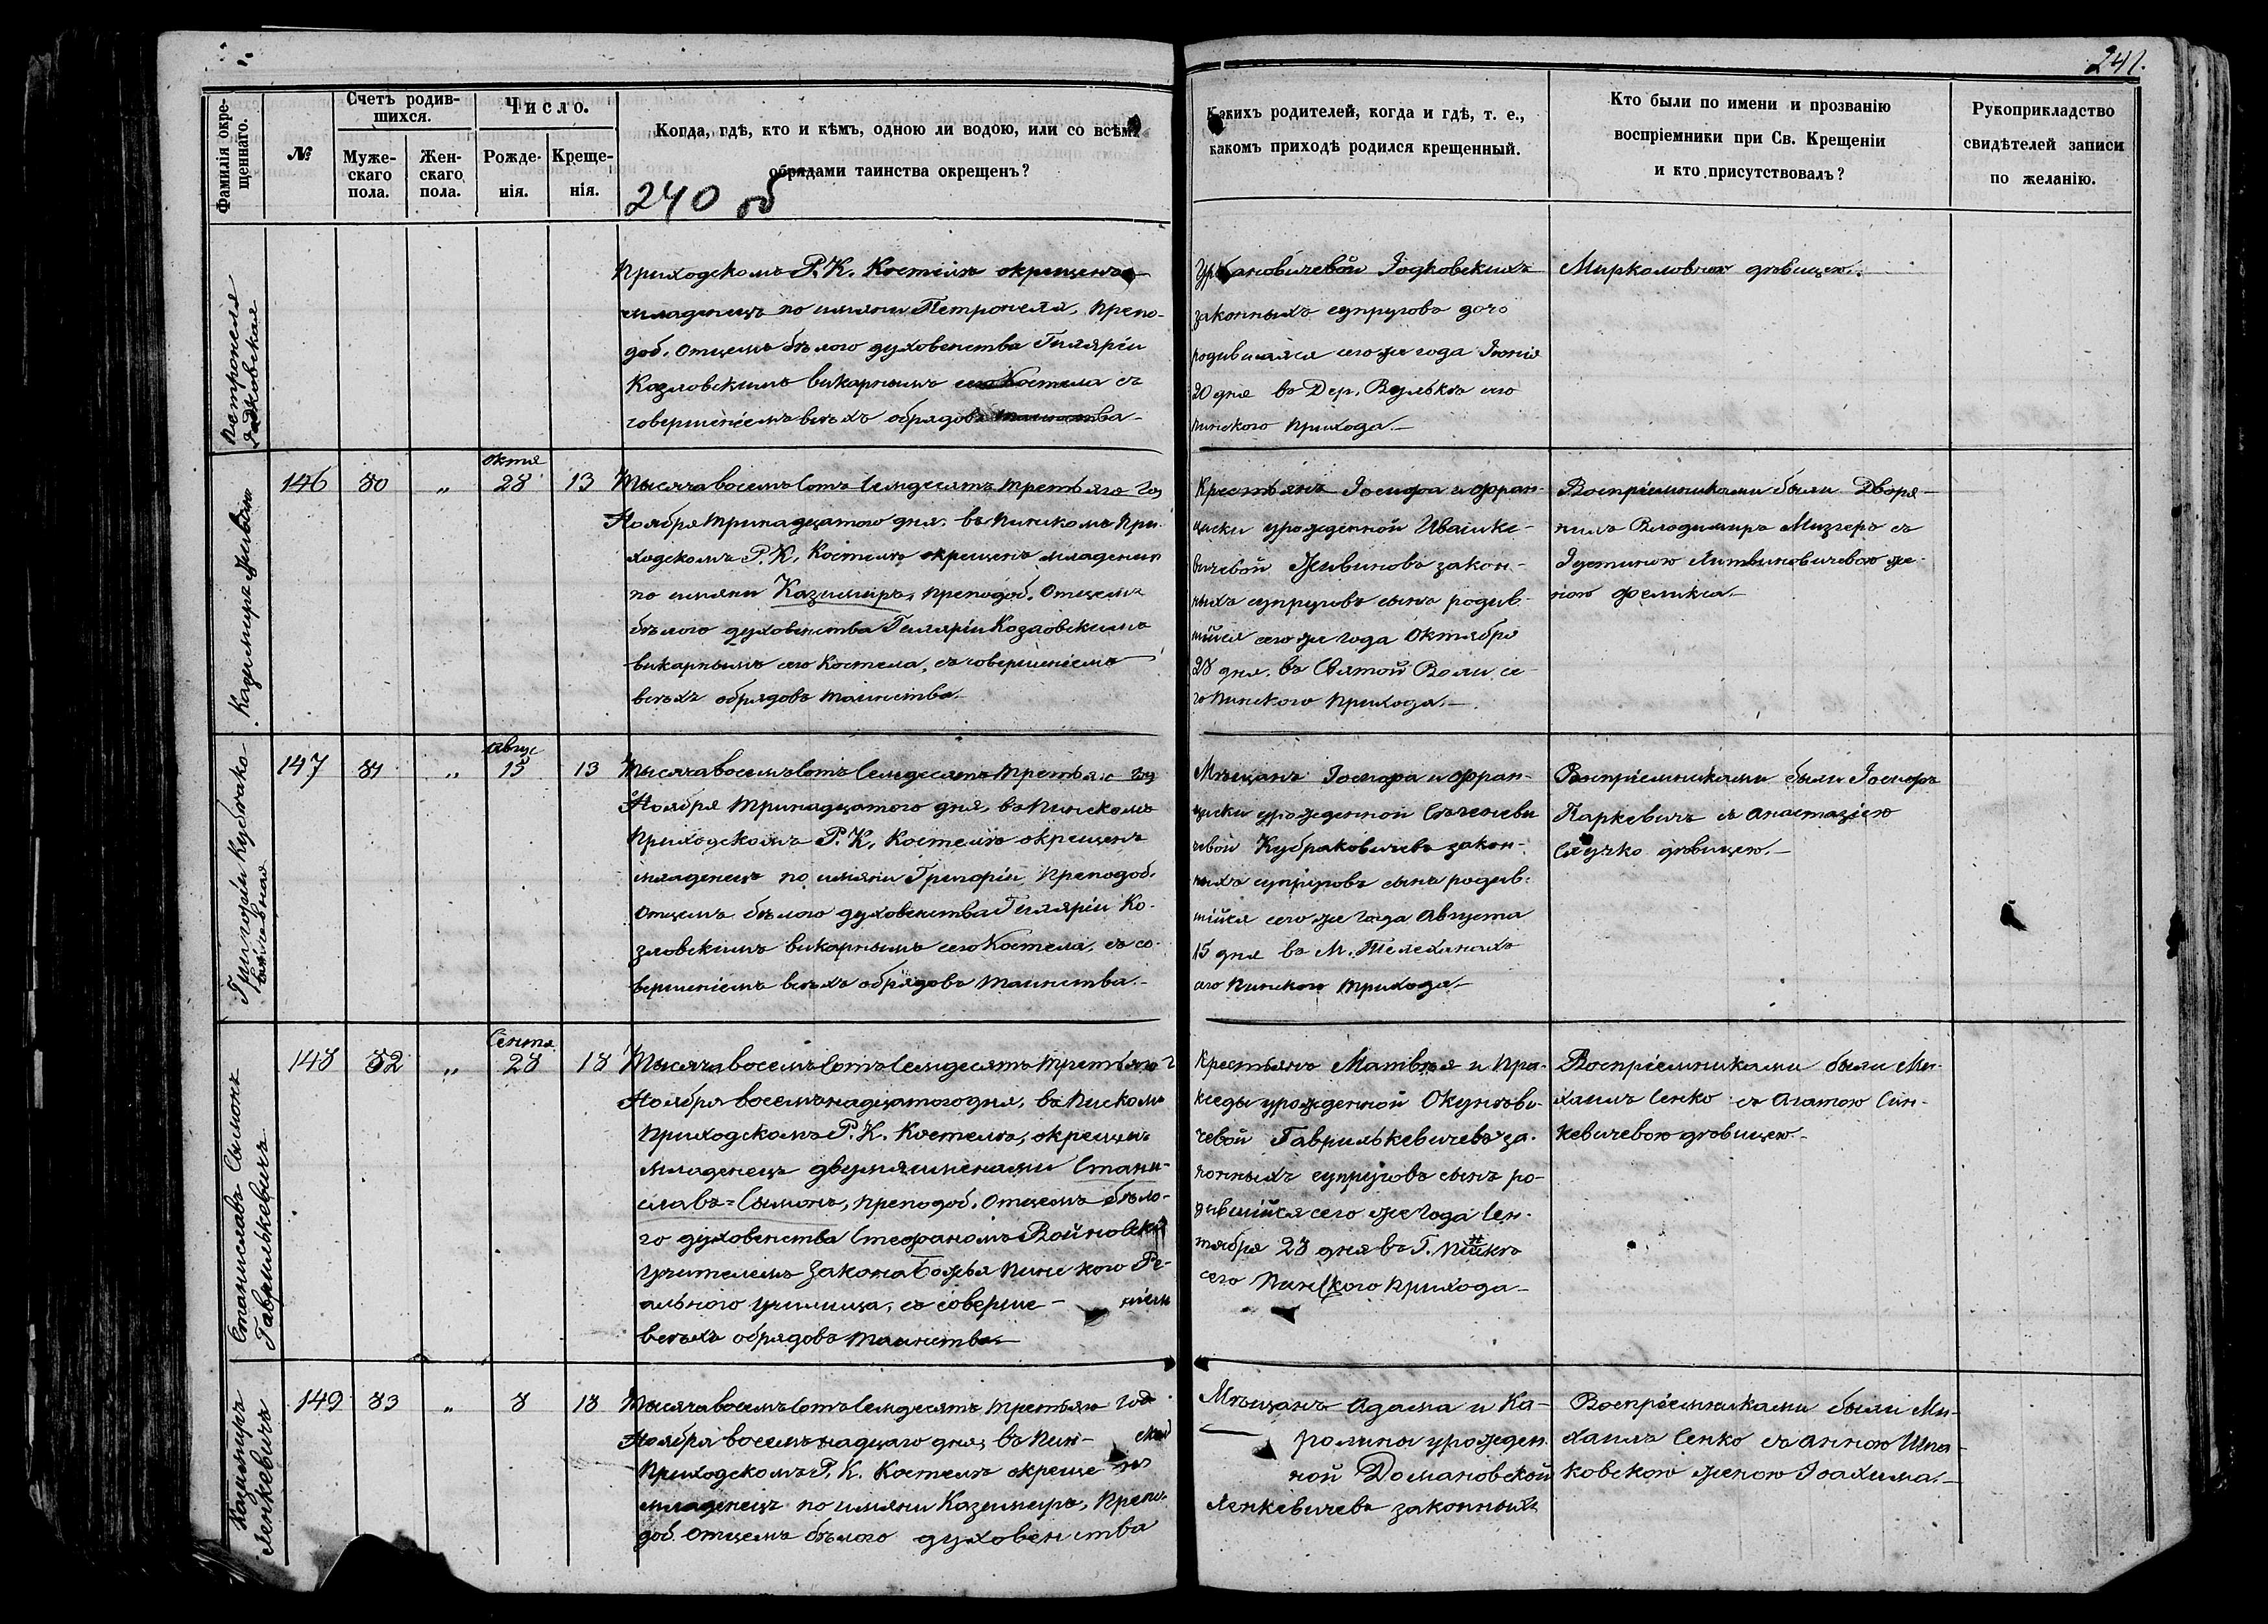 241.
Фамилія окре-
щеннаго.
№
Счетъ родив-
шихся.
Муже-
скаго
пола.
Жен-
скаго
пола.
Число.
Рожде-
нія.
Креще-
нія.
Когда, гдѣ, кто и кѣмъ, одною ли водою, или со всѣми
обрядами таинства окрещенъ?
240 об
Какихъ родителей, когда и гдѣ, т. е.,
какомъ приходѣ родился крещенный.
Кто были по имени и прозванію
воспріемники при Св. Крещеніи
и кто присутствовалъ?
Рукоприкладство
свидѣтелей записи
по желанію.
Петронеля
Приходскомъ Р. К. Костелѣ окрещена
младенецъ по имяни Петронеля, Препо-
доб. Отцемъ бѣлого духовенства Гиляріи
Козловскимъ викарнымъ сего Костела съ
совершеніемъ всѣхъ обрядовъ таинства
Урбановичевой Годковскихъ
законныхъ супруговъ дочь
родившаяся сего же года Іюнія
20 дня въ Дер. Вулькѣ сего
пинского Прихода.
Мирколовною дѣвицею.
Казимиръ Живинъ
146
80
„
октя
28
13
Тысяча восемь сотъ семдесятъ третьяго год
Ноября тринадцатого дня, въ Пинскомъ При-
ходскомъ Р. К. Костелѣ окрещенъ младенецъ
по имяни Казимиръ, преподоб. Отцемъ
бѣлого духовенства Гиляріи Козловскимъ
викарнымъ сего Костела, съ совершеніемъ
всѣхъ обрядовъ таинства
Крестьянъ Іосифа и Фран-
циски урожденной Ивашке-
вичевой Живиновъ закон-
ныхъ супруговъ сынъ родив-
шійся сего же года Октября
28 дня въ Святой Воли се-
го Пинского Прихода.
Воспріемниками были Дворя-
нинъ Владимиръ Мизгеръ съ
Іустиною Литвиновичевою же-
ною Феликса.
Григорій Кубрако
вичевная
147
81
„
авгус
15
13
Тысяча восемь сотъ семдесятъ третьяго год
Ноября тринадцатого дня, въ Пинскомъ
Приходскомъ Р. К. Костелѣ окрещенъ
младенецъ по имяни Григоріи Преподоб.
Отцемъ бѣлого духовенства Гиляріи Ко-
зловскимъ викарнымъ сего Костела, съ со-
вершеніемъ всѣхъ обрядовъ таинства.
Мѣщанъ Іосифа и Фран-
циски урожденной Сѣченеви
чевой Кубраковичевъ закон-
ныхъ супруговъ сынъ родив-
шійся сего же года Августа
15 дня въ М. Телеханахъ
сего Пинского Прихода
Воспріемниками были Іосифъ
Паркевичъ съ Анастазіею
Случко дѣвицею.
Станиславъ Сымонъ
Гаврилькевичъ
148
82
„
Сентя.
28
18
Тысяча восемь сотъ семдесятъ третьяго г
Ноября восемьнадцатого дня, въ Пискомъ
Приходскомъ Р. К. Костелѣ, окрещенъ
младенецъ двумя именами Стани-
славъ=Сымонъ, преподоб. Отцемъ бѣло-
го духовенства Стефаномъ Войновски
Учителемъ Закона Божья Пинского Ре-
ального училища, съ соверше- ніем
всѣхъ обрядовъ таинства
Крестьянъ Матвѣя и Пра-
кседы урожденной Окунѣви-
чевой Гаврилькевичевъ за-
конныхъ супруговъ сынъ ро-
дившійся сего же года Сен-
тября 28 дня въ Г. Пинкѣ
сего Пинского Прихода
Воспріемниками были Ми-
хаилъ Сенко съ Агатою Син-
кевичевою дѣвицею.
Казимиръ
Ленкевичъ
149
83
„
8
18
Тысяча восемь сотъ семдесятъ третьяго год
Ноября восемьнадцаго дня, въ Пин- ском
Приходскомъ Р. К. Костелѣ окреще нъ
младенецъ по имяни Казимиръ, Препо-
доб. Отцемъ бѣлого духовенства
Мѣщанъ Адама и Ка-
ролины урожден
ной Домановской
Ленкевичевъ законныхъ
Воспріемниками были Ми-
хаилъ Сенко съ Анною Шпа-
ковскою женою Іоахима.